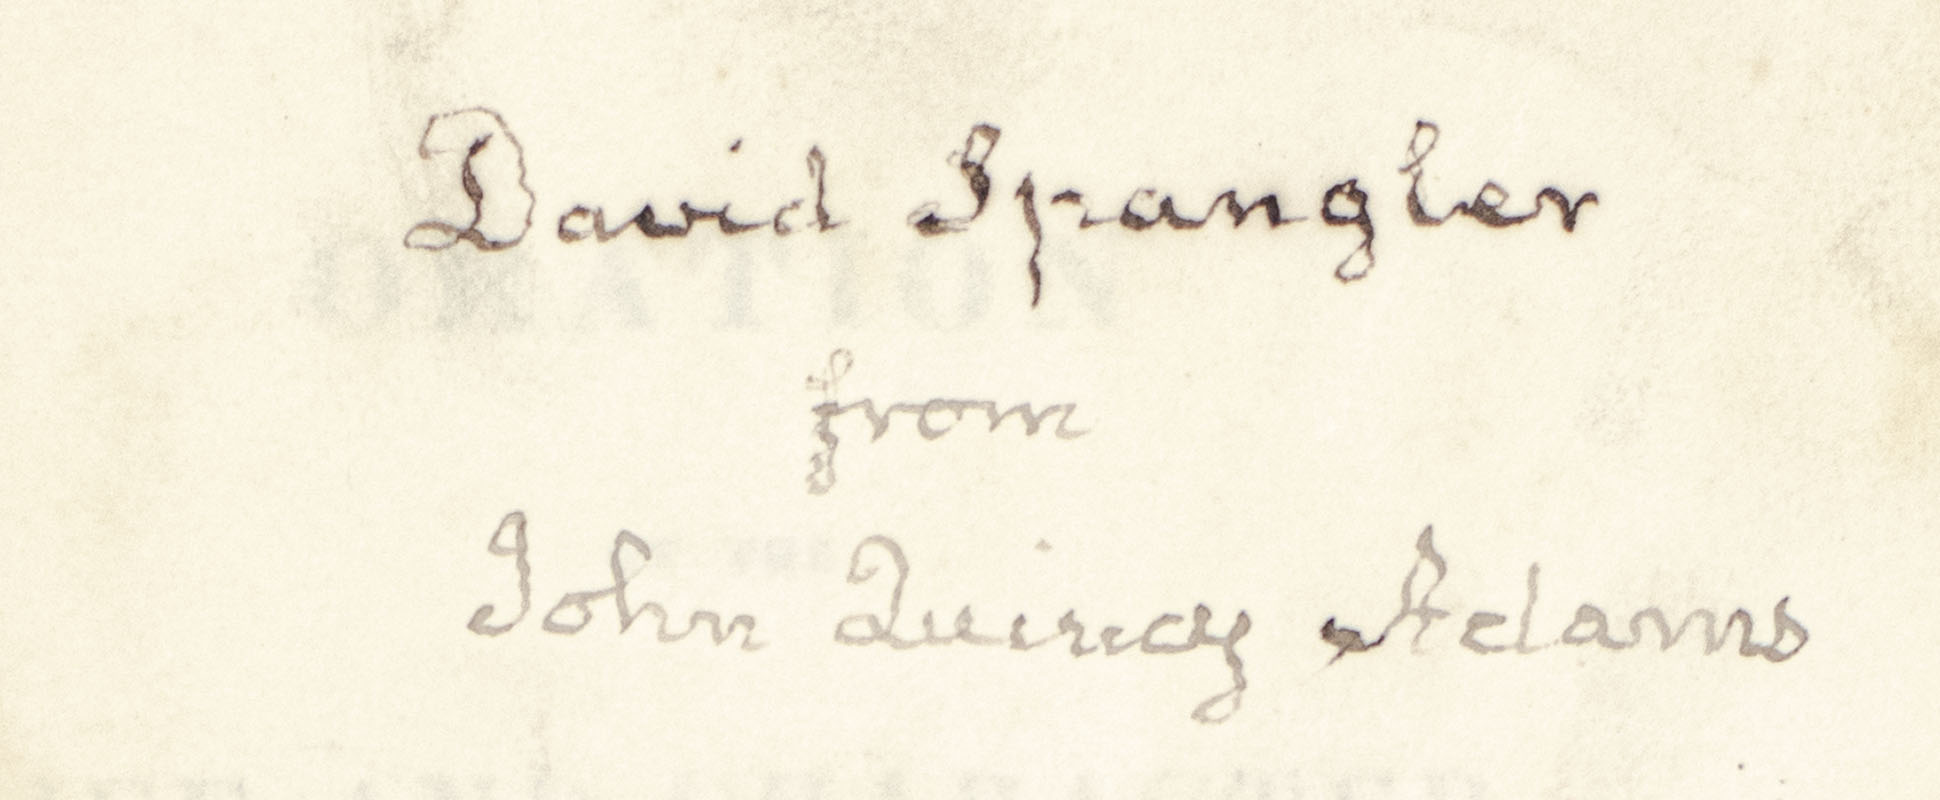 David Spangler
ORATION
from
John Quincy Adams